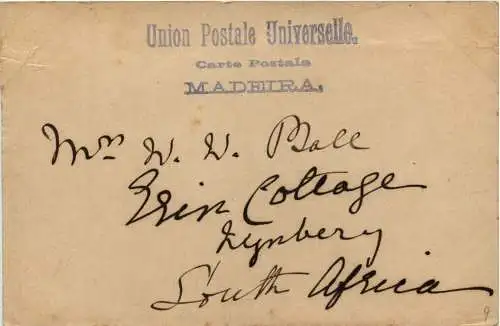 Union Postale Universelle.
Carte Postale
MADEIRA.
Mrs W. W. Ball
Erin Cottage
Wynberg
South Africa
9